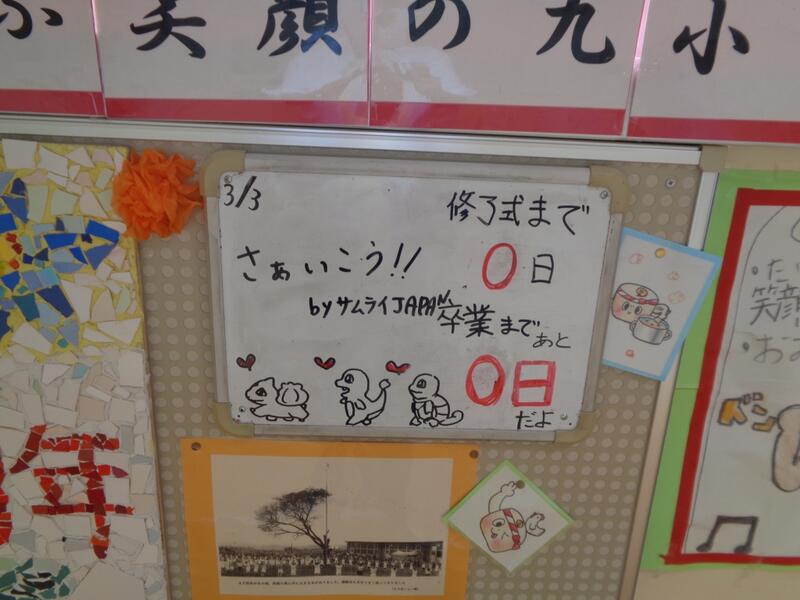 笑顔の九小
3/3
修了式まで
0日
さぁいこう!!
byサムライJAPAN
卒業まで
あと
0日
だよ
年
笑顔
ズン